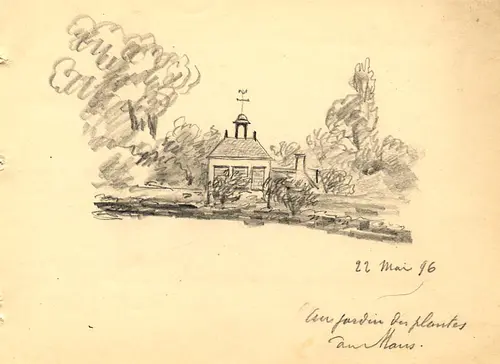 22 Mai 96
Au jardin des plantes
au Mans.